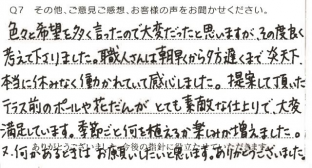 Q7 その他、ご意見ご感想、お客様の声をお聞かせください。
色々と希望を多く言ったので大変だったと思いますが、その度良く
考えて下さりました。職人さんは朝早くから夕方遅くまで炎天下、
本当に休みなく働かれていて感心しました。提案して頂いた
テラス前のポールや花だんが とても素敵な仕上りで、大変
満足しています。季節ごと何を植えるか楽しみが増えました。
又、何かあるときは お願いしたいと思います。ありがとうございました。
ありがとうございました。今後の指針に役立たせていただきます。